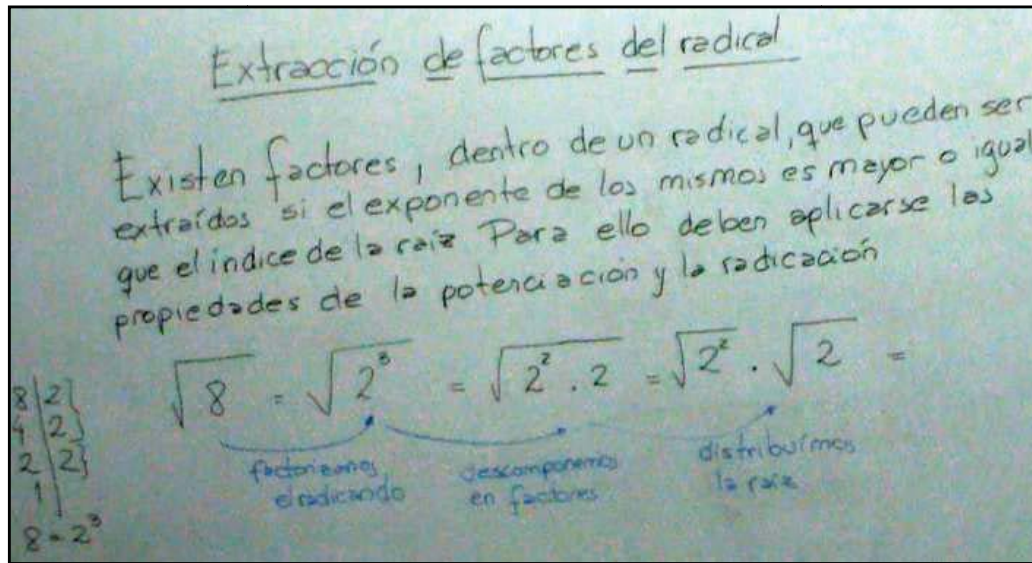 Extracción de factores del radical
Existen factores, dentro de un radical, que pueden ser
extraídos si el exponente de los mismos es mayor o igual
que el índice de la raíz Para ello deben aplicarse las
propiedades de la potenciación y la radicación
√8 = √2³ = √2² . 2 = √2² . √2 =
factorizamos el radicando
descomponemos en factores
distribuímos la raíz
8 | 2
4 | 2
2 | 2
1 |
8 = 2³